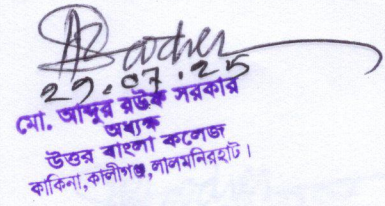 29.07.25
মো. আব্দুর রউফ সরকার
অধ্যক্ষ
উত্তর বাংলা কলেজ
কাকিনা,কালীগঞ্জ,লালমনিরহাট।